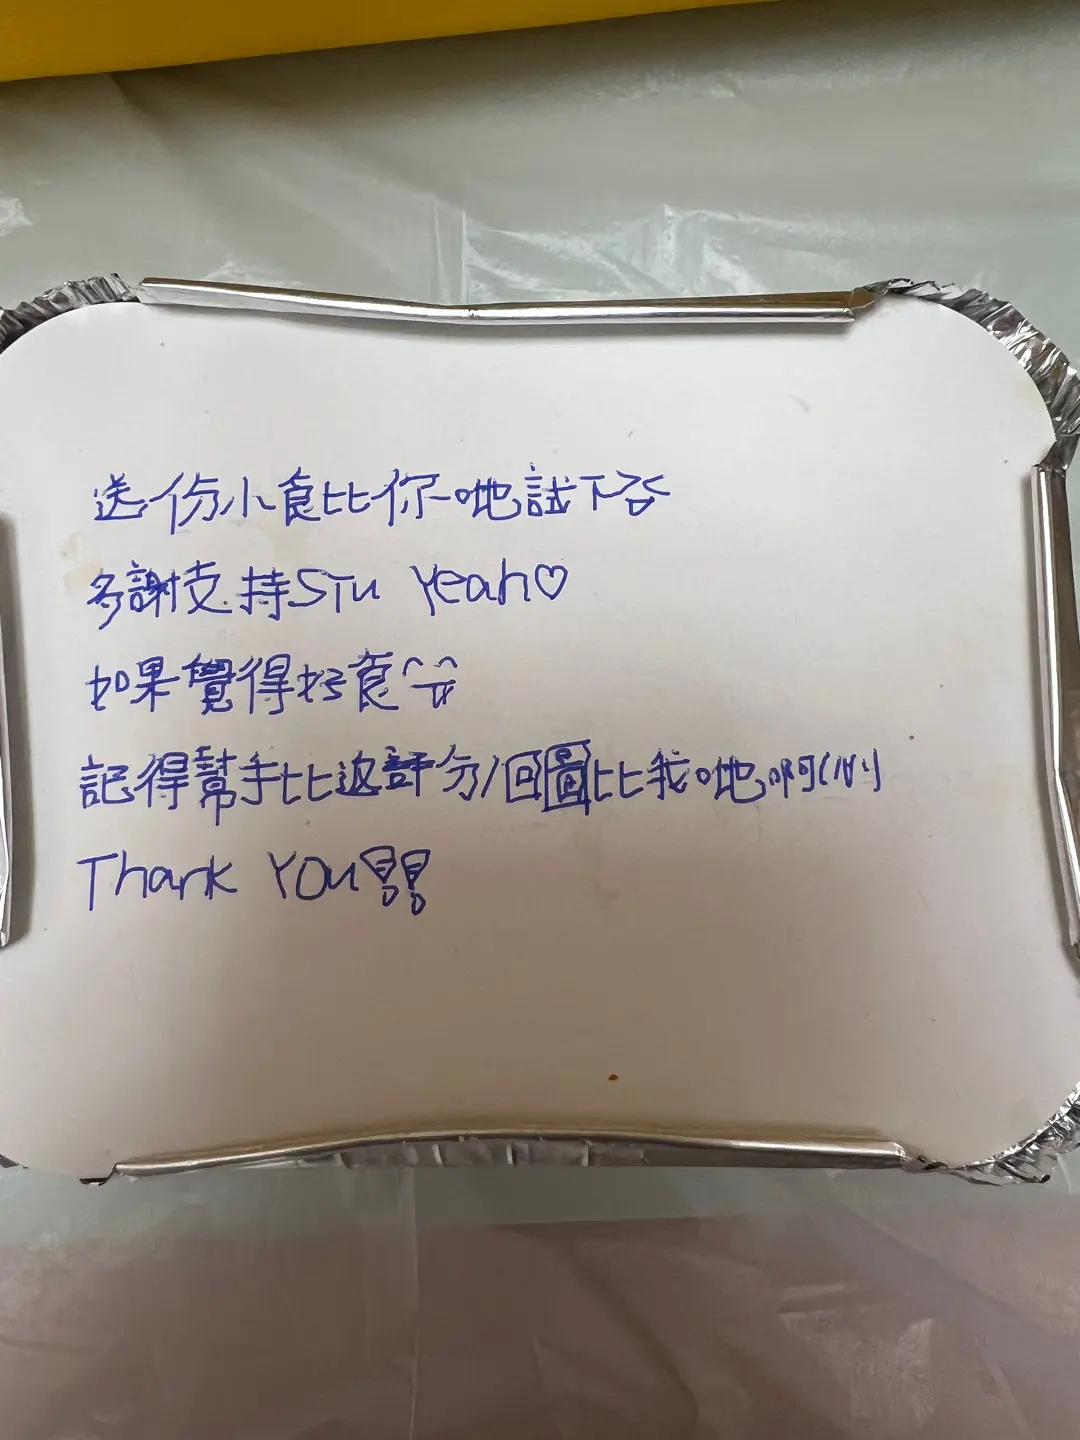 送份小食比你哋試下
多謝支持STU Yeah♡
如果覺得好食^^
記得幫手比返評分/回圖比我哋啊
Thank YOU!!